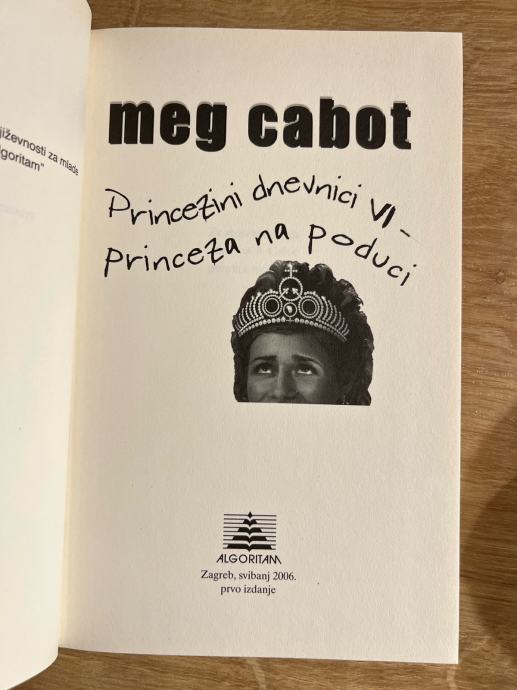 jiževnosti za mlade
lgoritam"
meg cabot
Princezini dnevnici VI -
Princeza na poduci
ALGORITAM
Zagreb, svibanj 2006.
prvo izdanje